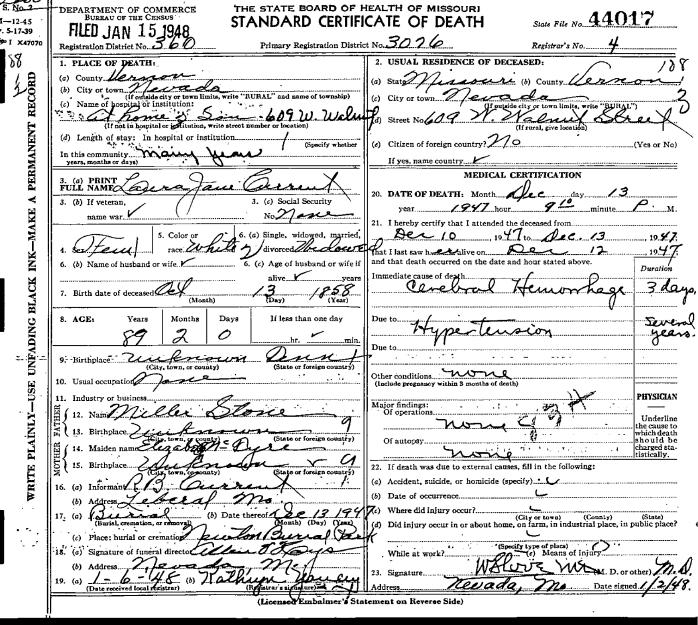 S. No. 2
DEPARTMENT OF COMMERCE
BUREAU OF THE CENSUS
THE STATE BOARD OF HEALTH OF MISSOURI
STANDARD CERTIFICATE OF DEATH
State File No. 44017
I-12-45
5-17-39
I X47070
FILED JAN 15 1948
Registration District No. 360
Primary Registration District No. 3076
Registrar's No. 4
WRITE PLAINLY—USE UNFADING BLACK INK—MAKE A PERMANENT RECORD
1. PLACE OF DEATH:
(a) County Vernon
(b) City or town Nevada
(If outside city or town limits, write "RURAL" and name of township)
(c) Name of hospital or institution:
at home of Son - 609 W. Walnut
(If not in hospital or institution, write street number or location)
(d) Length of stay: In hospital or institution
(Specify whether
In this community many years
years, months or days)
3. (a) PRINT FULL NAME Laura Jane Current
3. (b) If veteran, name war
3. (c) Social Security No. None
4. Fem
5. Color or race White
6. (a) Single, widowed, married, divorced Widowed
6. (b) Name of husband or wife
6. (c) Age of husband or wife if alive years
7. Birth date of deceased Oct 13 1858
(Month) (Day) (Year)
8. AGE: Years Months Days If less than one day
89 2 0 hr. min.
9. Birthplace Unknown
(City, town, or county) (State or foreign country)
10. Usual occupation None
11. Industry or business
FATHER
12. Name Miller Stone
13. Birthplace Unknown 9
(City, town, or county) (State or foreign country)
MOTHER
14. Maiden name Elizabeth
15. Birthplace Unknown 9
(City, town, or county) (State or foreign country)
16. (a) Informant R.B. Current
(b) Address Liberal Mo.
17. (a) Burial (b) Date thereof Dec 13 1947
(Burial, cremation, or removal) (Month) (Day) (Year)
(c) Place: burial or cremation Newton Burial Park
18. (a) Signature of funeral director
(b) Address Nevada Mo
19. (a) 1-6-48 (b) Kathryn
(Date received local registrar) (Registrar's signature)
2. USUAL RESIDENCE OF DECEASED: 108
(a) State Missouri (b) County Vernon
(c) City or town Nevada
(If outside city or town limits, write "RURAL")
(d) Street No. 609 W. Walnut Street
(If rural, give location)
(e) Citizen of foreign country? No (Yes or No)
If yes, name country
MEDICAL CERTIFICATION
20. DATE OF DEATH: Month Dec day 13
year 1947 hour 9 10 minute P. M.
21. I hereby certify that I attended the deceased from
Dec 10 1947 to Dec. 13 1947
that I last saw her alive on Dec 12 1947
and that death occurred on the date and hour stated above.
Duration
Immediate cause of death
Cerebral Hemorrhage 3 days,
Due to Hypertension Several years.
Due to
Other conditions none
(Include pregnancy within 3 months of death)
PHYSICIAN
Major findings:
Of operations none
Of autopsy none
Underline the cause to which death should be charged statistically.
22. If death was due to external causes, fill in the following:
(a) Accident, suicide, or homicide (specify)
(b) Date of occurrence
(c) Where did injury occur?
(City or town) (County) (State)
(d) Did injury occur in or about home, on farm, in industrial place, in public place?
(Specify type of place)
While at work? (e) Means of injury
23. Signature (M. D. or other) M.D.
Address Nevada, Mo Date signed 1/2/48.
(Licensed Embalmer's Statement on Reverse Side)